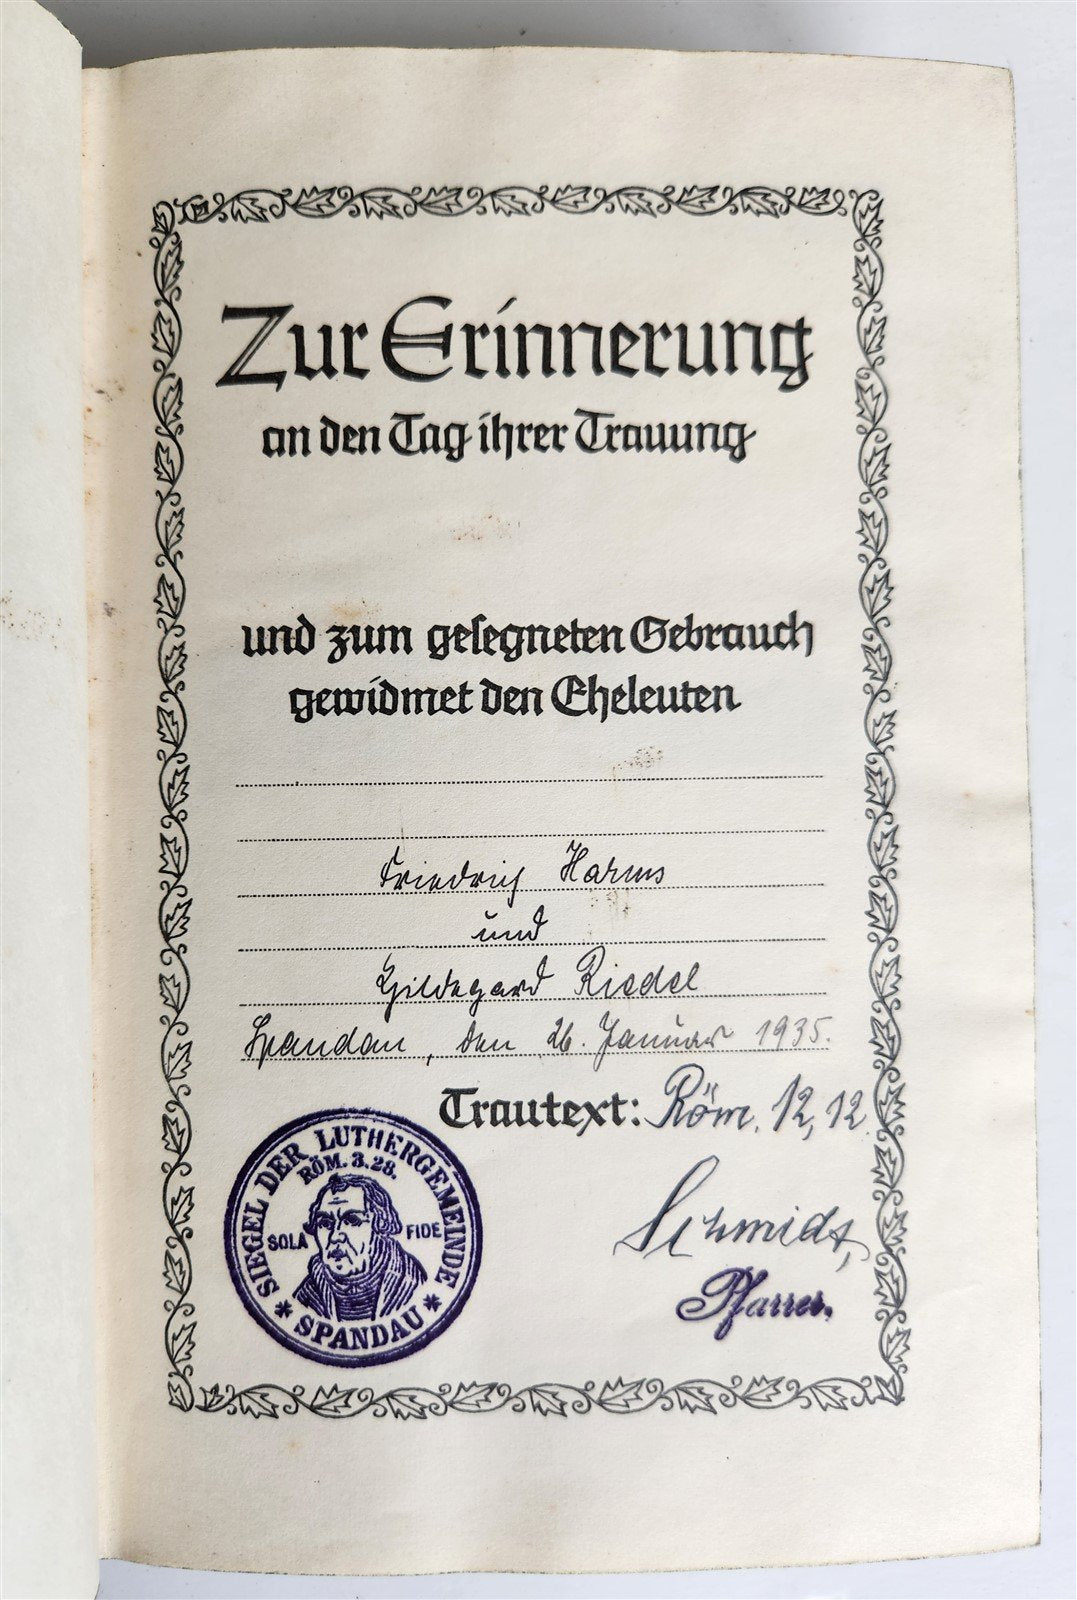 Zur Erinnerung
an den Tag ihrer Trauung
und zum gesegneten Gebrauch
gewidmet den Eheleuten
Friedrich Harms
und
Hildegard Riedel
Spandau, den 26. Januar 1935.
Trautext: Röm. 12, 12
SIEGEL DER LUTHERGEMEINDE
RÖM. 3.28.
SOLA FIDE
* SPANDAU *
Schmidt,
Pfarrer.